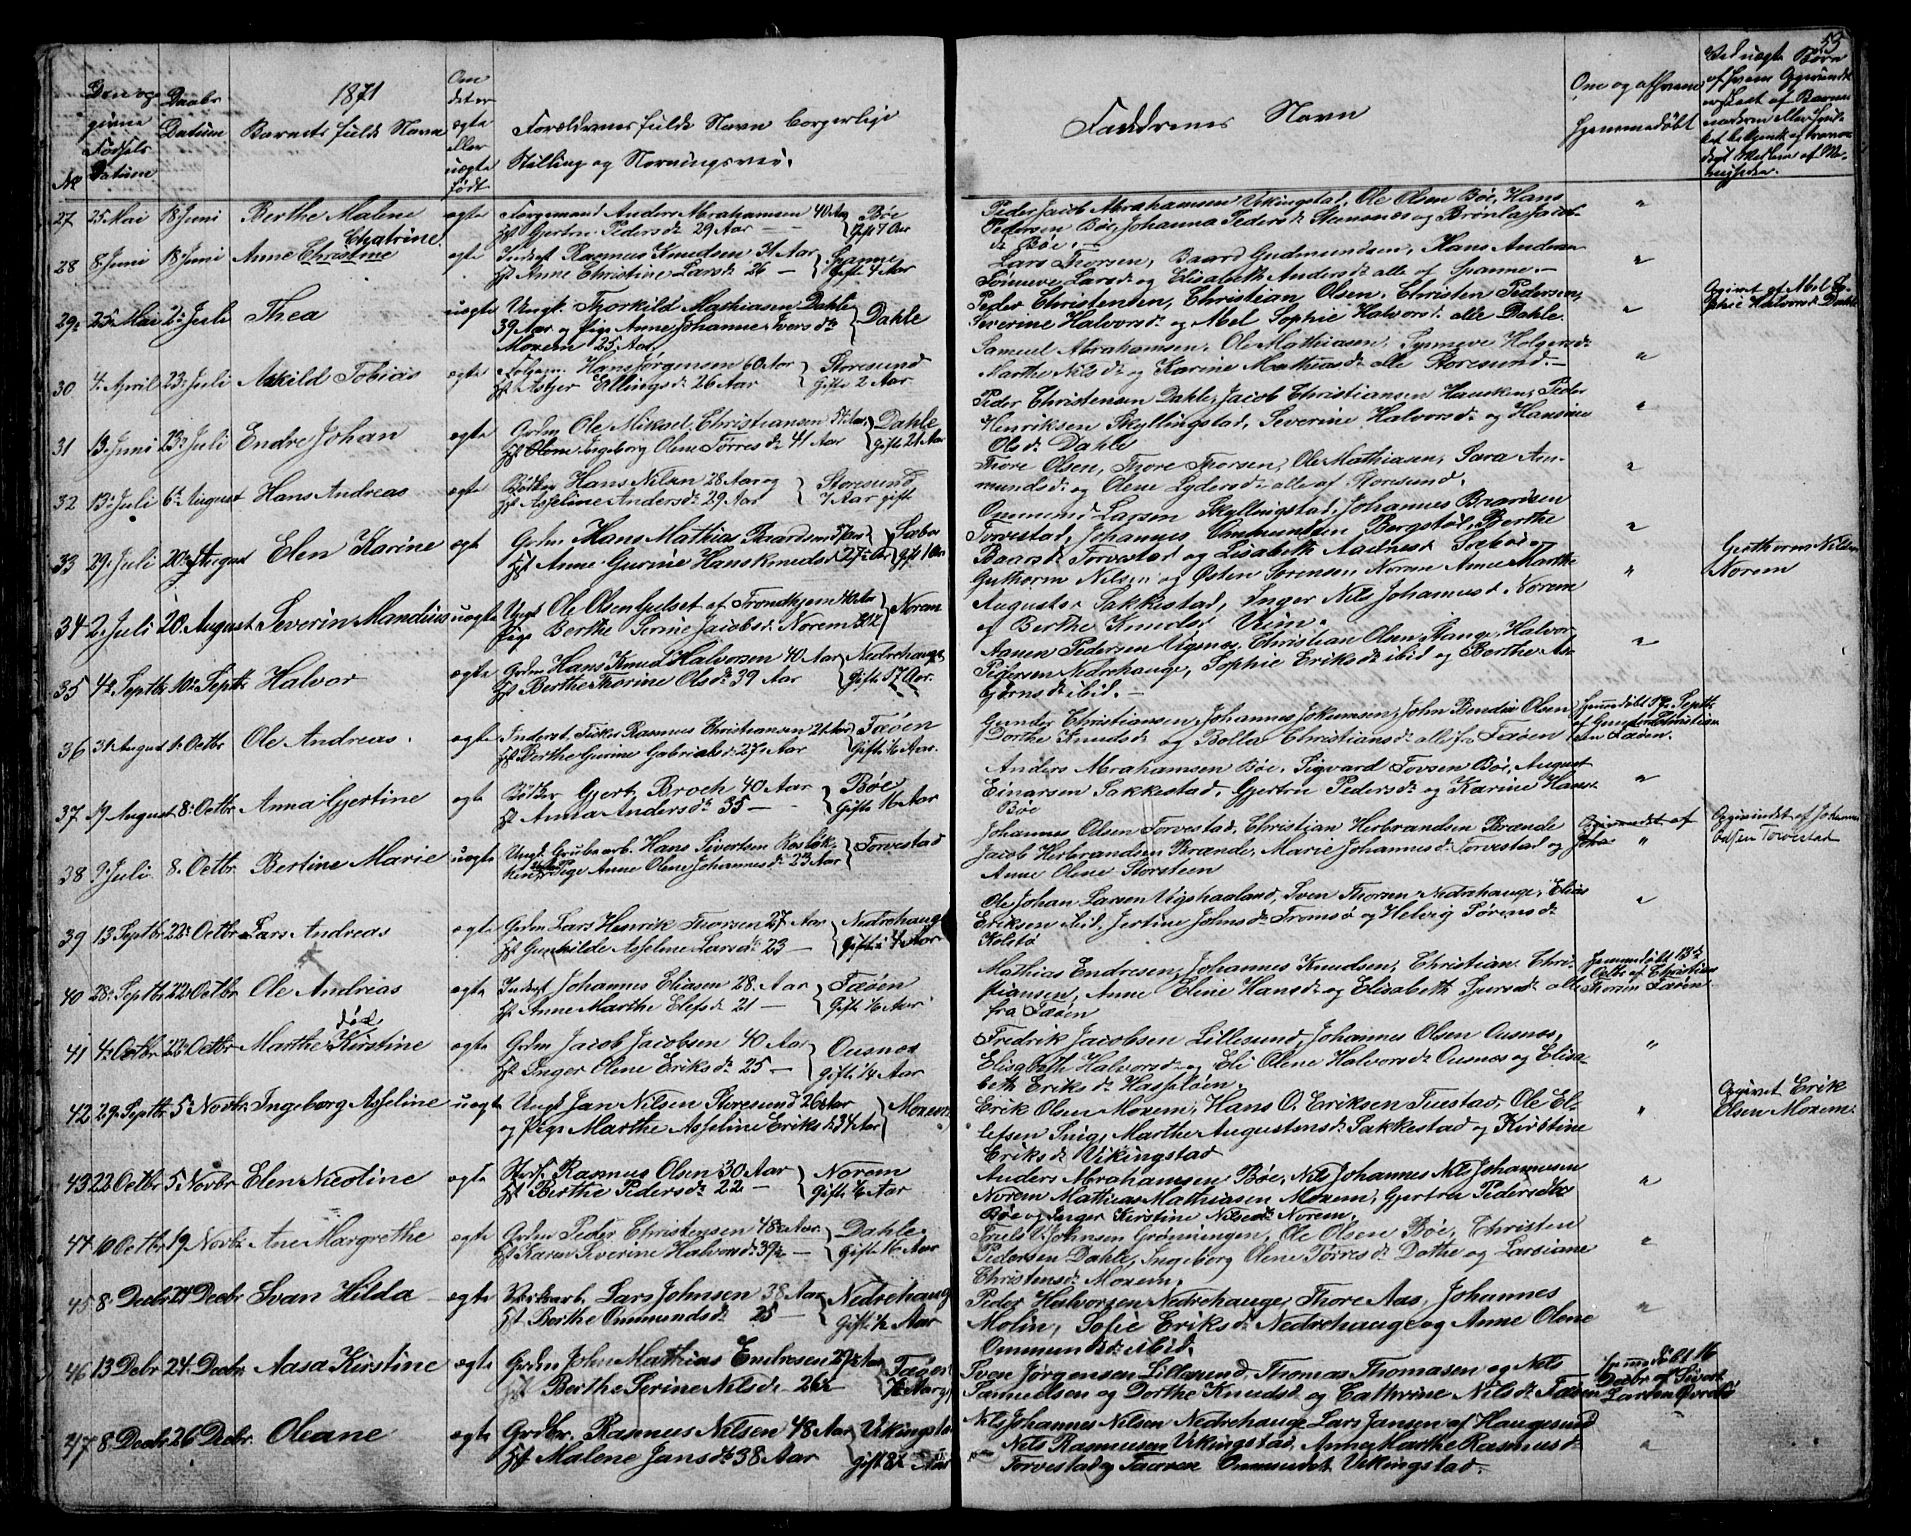 53
1871
No
Den op-
givne
Fødsels
Datum
Daabs
Datum
Barnets fulde Navn
Om
det er
ægte
eller
uægte
født
Forældrenes fulde Navn borgerlige
Stilling og Nærningsvei.
Faddrenes Navn
Om og af hvem
hjemmedøbt
27 25 Mai 18 Juni Berthe Malene ægte Forgemand Anders Abrahamsen 40 Aar Bøe
Hst Gjertru Pedersd. 29 Aar Gift 7 Aar
Peder Jacob Abrahamsen Vikingstad, Ole Olsen Bø, Hans
Pedersen Bøe, Johanna Pedersd. Stemsnæs og Brønla Jacob-
d. Bøe.
28 8 Juni 18 Juni Anne Christine Chatrine ægte Inderst Rasmus Knudsen 31 Aar Spanne
Hst Anne Christine Larsd. 26 Gift 4 Aar
Lars Thorsen, Baard Gudmundsen, Hans Andrea
Tønneve Larsd. og Elisabeth Andersd. alle af Spanne.
29 25 Mai 2 Juli Thea uægte Ungk. Thorkild Mathiasen Dahle Dahle
39 Aar og Pige Anne Johanne Iversd.
Moxem 25 Aar.
Peder Christensen, Christian Olsen, Christen Pedersen,
Severine Halvorsd. og Mel Sophie Halvorsd. alle Dahle.
Opgivet af Mel So-
phie Halvorsd. Dahle
30 4 April 23 Juli Askild Tobias ægte Følgem. Hans Jørgensen 60 Aar Storesund
Hst Astjer Ellingsd. 26 Aar Gifte 2 Aar
Samuel Abrahamsen, Ole Mathiasen, Synneve Holgersd.
Marthe Nilsd. og Karine Mathiasd. alle Storesund.
31 13 Juni 23 Juli Endre Johan ægte Grdm Ole Miksel Christiansen 54 Aar Dahle
Hst Olene Ingeborg Olene Tørresd. 41 Aar Gift 21 Aar
Peder Christensen Dahle, Jacob Christiansen Hausken, Peder
Henriksen Skyllingstad, Severine Halvorsd. og Hansine
Olsd. Dahle
32 13 Juli 6 August Hans Andreas ægte Bødker Hans Nilsen 28 Aar og Storesund
Hst Asseline Andersd. 29 Aar 7 Aar gift
Thore Olsen, Thore Thorsen, Ole Mathiasen, Sara Am-
mundsd. og Olene Lydersd. alle af Storesund.
33 29 Juli 20 August Elen Karine ægte Grdm Hans Mathias Baardsen
Hst Anne Gurine Hans Knudsd. 27 Aar Gift 1 Aar
Ommund Larsen Skyllingstad, Johannes Baardsen
Torvestad, Johannes Ommundsen Bergstøl, Berthe
Baarsd. Torvestad og Lisabeth Aadnesd. Sæbøe
34 2 Juli 20 August Severin Mandius uægte Ungk Ole Olsen Gjelset af Trondhjem Norem
Pige Berthe Serine Jacobsd. Norem
Guthorm Nilsen og Østen Sørensen Norem Anne Marthe
Augusta Sakkestad, Inger Nils Johannesd. Norem
og Berthe Knudsd. Viem.
Guthorm Nilsen
Norem
35 4 Septbr 10 Septbr Halvor ægte Grdm Hans Knud Halvorsen 40 Aar Nedrehauge
Hst Berthe Thorine Olsd. 39 Aar Gift 17 Aar.
Aanen Pedersen Vignæs, Christian Olsen Stange, Halvor
Pedersen Nedrehauge, Sophie Eriksd. ibid og Berthe As-
bjørnsd. ibid.
36 31 August 1 Octbr Ole Andreas. ægte Inderst. Fisker Rasmus Christiansen Fæøen
Hst Berthe Gurine Gabrielsd. 27 Aar Gift ½ Aar.
Gunder Christiansen, Johannes Jokumsen, John Bendix Olsen
Dorthe Knudsd. og Bolla Christiansd. alle fra Fæøen
Hjemmedøbt 17 Septbr
af Gunder Christian-
sen Fæøen.
37 19 August 8 Octbr Anna Gjertine ægte Bødker Gjert Broch 40 Aar Bøe
Hst Anna Andersd. 35 Gifte 16 Aar
Anders Abrahamsen Bøe, Sigvard Tovsen Bøe, August
Einarsen Sakkestad, Gjertru Pedersd. og Karine Hansd.
Bøe
38 9 Juli 8 Octbr Bertine Marie uægte Ungk. Grubearb. Hans Sivertsen Torvestad
Pige Anne Olene Johannesd. 23 Aar
Johannes Olsen Torvestad, Christian Herbrandsen Brænde
Jacob Herbrandsen Brænde, Marie Johannesd. Torvestad og
Anne Olene Storsteen
Opgivet af Johannes
Olsen Torvestad
39 13 Septbr 22 Octbr Lars Andreas ægte Grdm Lars Henrik Thorsen 27 Aar Nedrehauge
Hst Gunhilde Asseline Larsd. 23 Gifte 4 Aar
Ole Johan Larsen Vigshaaland, Sven Thorsen Nedrehauge, Elias
Eriksen ibid, Jertine Johnsd. Tromsø og Helvig Sørensd.
Kolstø
40 28 Septbr 22 Octbr Ole Andreas ægte Inderst Johannes Eliasen 28 Aar Fæøen
Hst Anne Marthe Elefsd. 21 Gift ½ Aar
Mathias Endresen, Johannes Knudsen, Christian Chri-
stiansen, Anne Eline Hansd. og Elisabeth Sjursd. alle
fra Fæøen
Hjemmedøbt 13
Octbr af Christian
Thorsen Fæøen
41 4 Octbr 22 Octbr Marthe Kirstine død ægte Grdm Jacob Jacobsen 40 Aar Ousnes
Hst Inger Olene Eriksd. 25 Gift ¼ Aar
Fredrik Jacobsen Lillesund, Johannes Olsen Ousnes,
Elisabeth Halvorsd. og Eli Olene Halvorsd. Ousnes og Elisa-
beth Eriksd. Hasseløen.
42 29 Septbr 5 Novbr Ingeborg Asseline uægte Ungk Jan Nilsen Storesund 26 Aar Moxem
og Pige Marthe Asseline Eriksd. 34 Aar
Erik Olsen Moxem, Hans O. Eriksen Tuestad, Ole El-
lefsen Snig, Marthe Augustensd. Sakkestad og Kirstine
Eriksd. Vikingstad
Opgivet Erik
Olsen Moxem.
43 22 Octbr 5 Novbr Elen Nicoline ægte Rasmus Olsen 30 Aar Norem
Hst Berthe Pedersd. 22 Gift ½ Aar
Anders Abrahamsen Bøe, Nils Johannes Nils Johannesen
Norem Mathias Mathiasen Moxem, Gjertru Pedersd.
Bøe og Inger Kirstine Nilsd. Norem.
44 6 Octbr 19 Novbr Ane Margrethe ægte Grdm Peder Christensen 48 Aar Dahle
Hst Karen Severine Halvorsd. 39 Gift 16 Aar
Truls V. Johnsen Grønningen, Ole Olsen Bøe, Christen
Pedersen Dahle, Ingeborg Olene Tørresd. Dahle og Larsiane
Christensd. Moxem.
45 8 Decbr 24 Decbr Svan Hilda ægte Lars Johnsen 38 Aar Nedrehaug
Hst Berthe Ommundsd. 25 Gift ½ Aar
Peder Halvorsen Nedrehauge, Thore Aas, Johannes
Molin, Sofie Eriksd. Nedrehauge og Anne Olene
Ommundsd. ibid.
46 13 Debr 24 Decbr Aasa Kirstine ægte Grdm John Mathias Endresen Fæøen
Hst Berthe Serine Nilsd. 26
Sven Jørgensen Lillesund, Thomas Thomasen og Nels
Samuelsen og Dorthe Knudsd. og Cathrine Nilsd. Fæøen
Hjemmedøbt 16
Decbr af Sivert
Larsen
47 8 Decbr 26 Decbr. Oleane ægte Grdbr. Rasmus Nilsen 48 Aar Vikingstad
Hst Malene Jansd. 38 Aar Gift 8½ Aar
Nils Johannes Nilsen Nedrehauge Lars Jansen af Haugesund
Nils Rasmusen Vikingstad, Anne Marthe Rasmusd.
Torvestad og Taarese Ommundsd. Vikingstad.